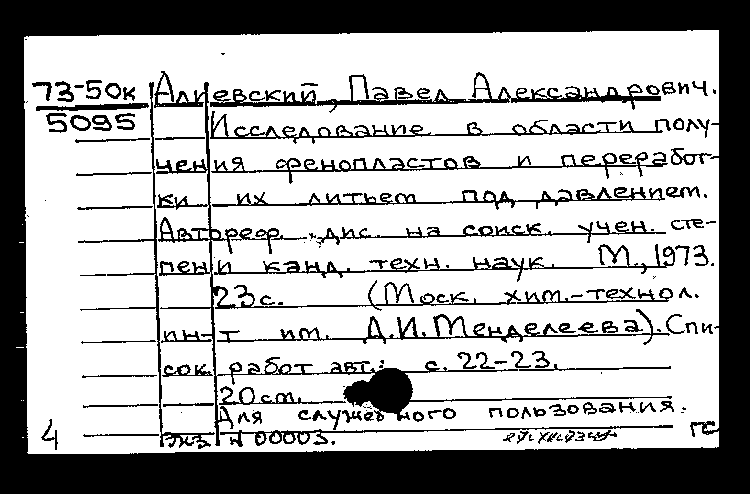 73-50к Алиевский, Павел Александрович.
5095 Исследование в области полу-
чения фенопластов и переработ-
ки их литьем под давлением.
Автореф. дис. на соиск. учен. сте-
пени канд. техн. наук. М., 1973.
23с. (Моск. хим.-технол.
ин-т им. Д.И.Менделеева). Спи-
сок работ авт.: с. 22-23.
20см.
Для служебного пользования.
4 Экз N 00003. ГС